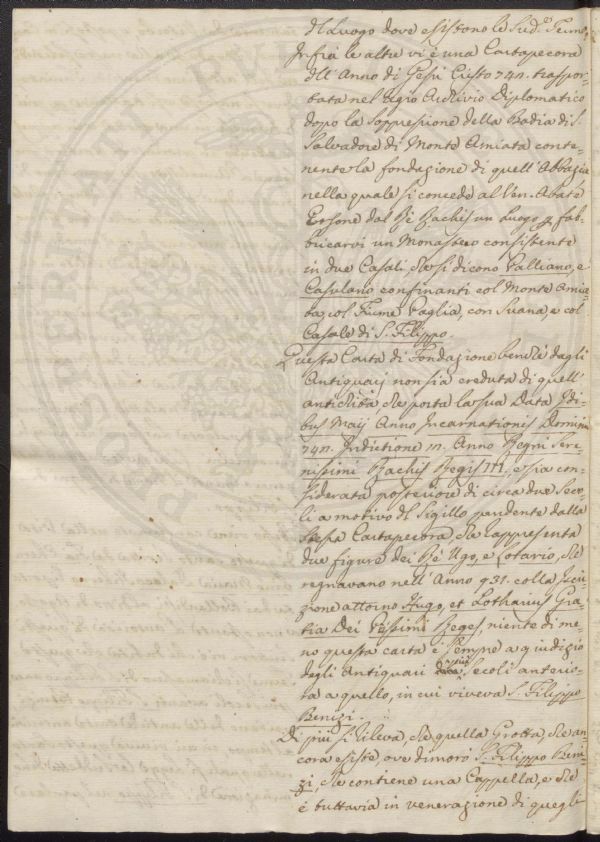 del Luogo dove esistono le Sud.e Terme,
Infra le altre vi è una Cartapecora
dell' Anno di Gesù Cristo 742. traspor-
tata nel Regio Archivio Diplomatico
dopo la Soppressione della Badia di S.
Salvadore di Monte Amiata conte-
nente la fondazione di quell' Abbazia
nella quale si concede al Ven. Abate
Ersone dal Rè Rachis un Luogo p fab-
bricarvi un Monastero consistente
in due Casali, che si dicono Palliano, e
Casulano confinanti col Monte Amia-
ta, col Fiume Paglia, con Suana, e col
Casale di S. Filippo.
Questa Carta di Fondazione benchè dagli
Antiquarj non sia creduta di quell'
antichità che porta la sua Data Idi-
bus Maij Anno Incarnationis Domini
742. Indictione III. Anno Regni Sere-
nissimi Rachis Regis III. e sia con-
siderata posteriore di circa due Seco-
li a motivo del Sigillo pendente dalla
stessa Cartapecora che rappresenta
due figure dei Rè Ugo, e Lotario, che
regnavano nell' Anno 931. colla Iscri-
zione attorno Hugo, et Lotharius Gra-
tia Dei Piissimi Reges, niente di me-
no questa carta è sempre a giudizio
degli Antiquarj più Secoli anterio-
ra a quello, in cui viveva S. Filippo
Benizi.
Di più si rileva, che quella Grotta, che an-
cora esiste, ove dimorò S. Filippo Beni-
zi, che contiene una Cappella, e che
è tuttavia in venerazione di quegli